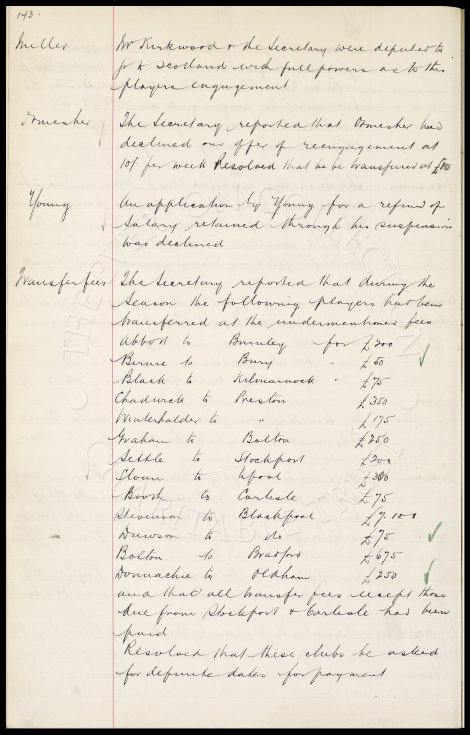 143.
Miller Mr Kirkwood & the Secretary were deputed to
go to Scotland with full powers as to this
players engagement
Ormesher The Secretary reported that Ormesher had
declined our offer of reengagement at
10/- per week Resolved that he be transferred at £10
Young An application by Young for a refund of
Salary retained through his suspension
was declined
Transfer fees The Secretary reported that during the
Season the following players had been
transferred at the undermentioned fees
Abbott to Burnley for £200
Birnie to Bury " £50
Black to Kilmarnock " £75
Chadwick to Preston £350
Winterhalder to " £175
Graham to Bolton £250
Settle to Stockport £200
Sloan to Lpool £300
Booth to Carlisle £75
Stevenson to Blackpool £7.10.0
Dawson to do £75
Bolton to Bradford £675
Donnachie to Oldham £250
and that all transfer fees except those
due from Stockport & Carlisle had been
paid
Resolved that these clubs be asked
for definite dates for payment